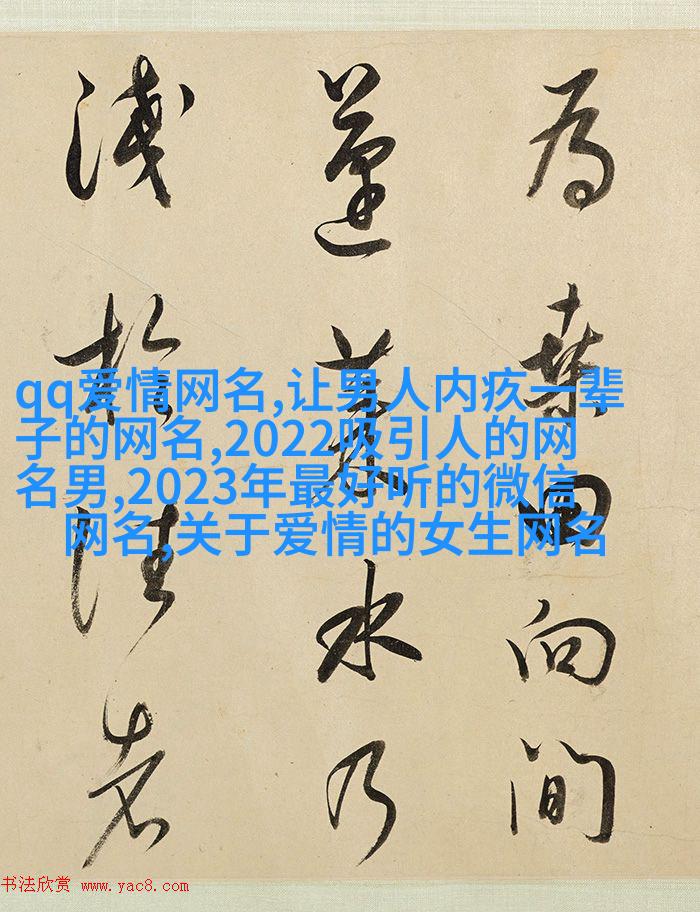 為桑田向間
蓬萊水乃
淺於往者
qq爱情网名,让男人内疚一辈
子的网名,2022吸引人的网
名男,2023年最好听的微信
网名,关于爱情的女生网名
书法欣赏 www.yac8.com